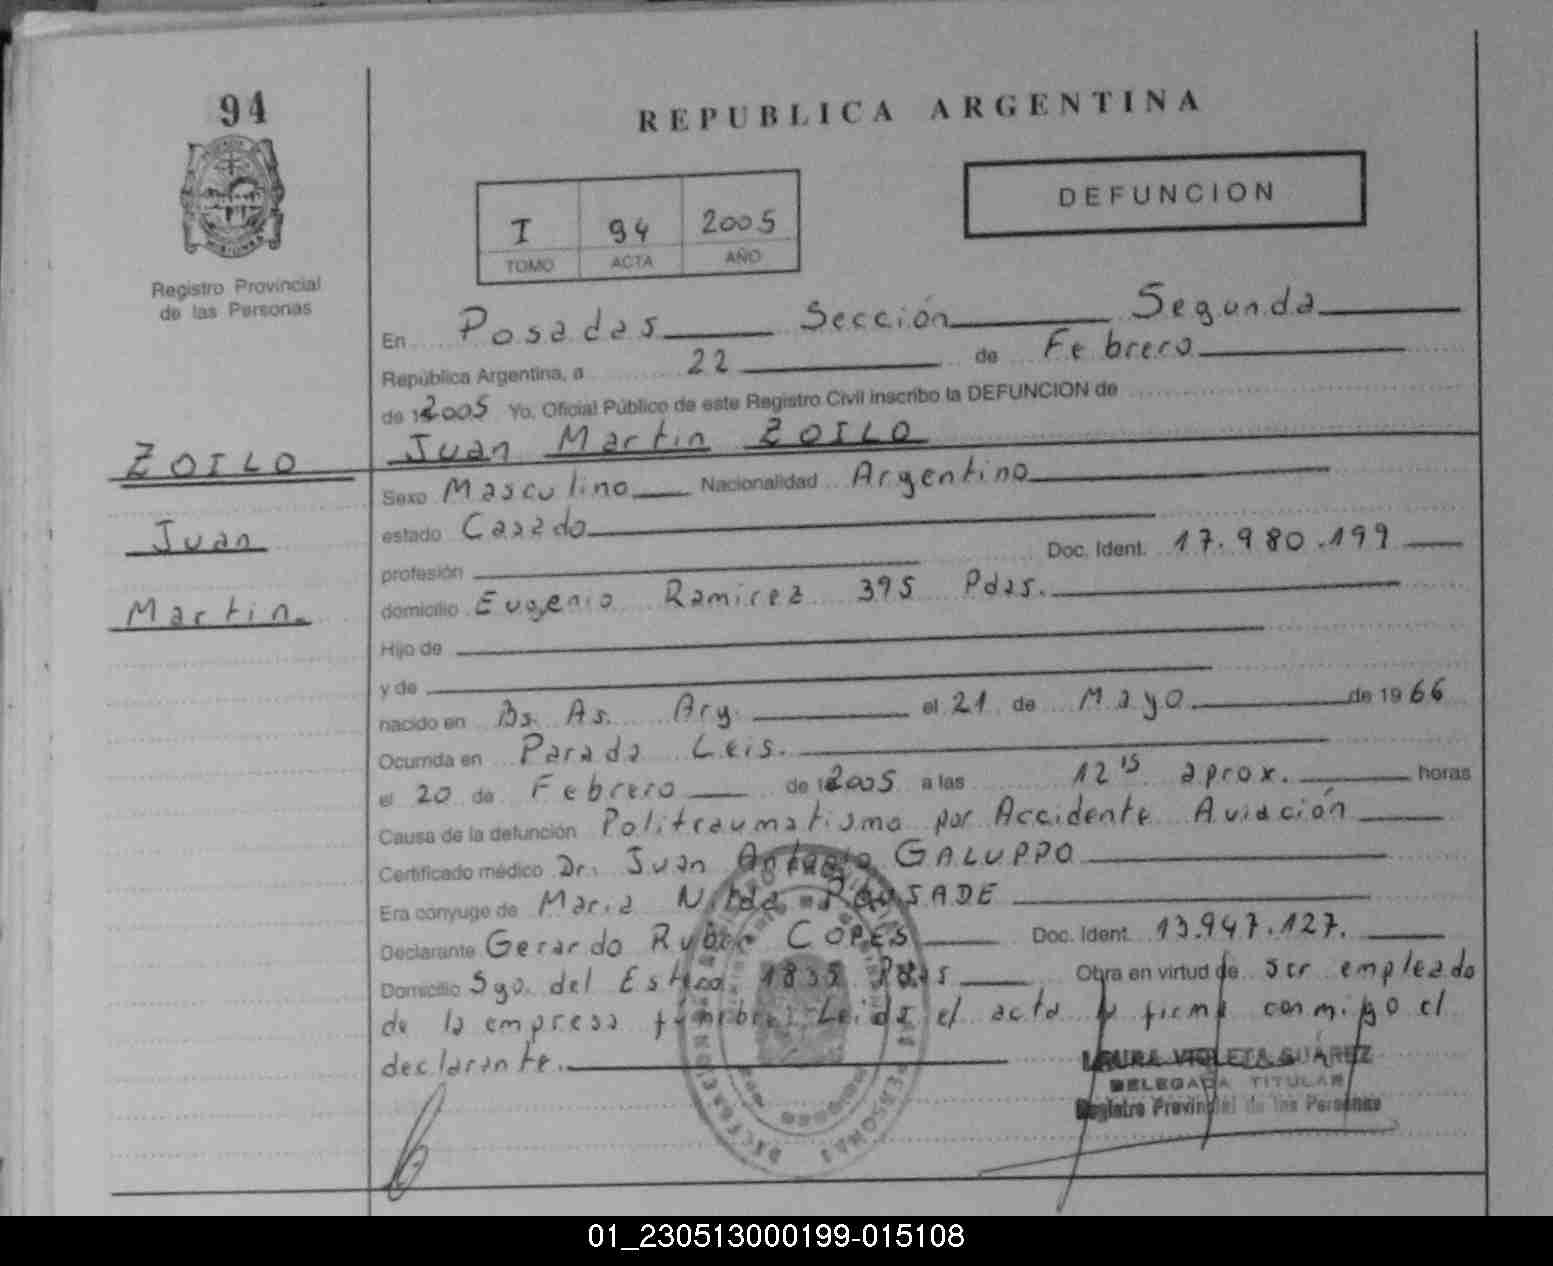 94
Registro Provincial
de las Personas
REPUBLICA ARGENTINA
DEFUNCION
I 94 2005
TOMO ACTA AÑO
En Posadas Sección Segunda
República Argentina, a 22 de Febrero
de 12005 Yo, Oficial Público de este Registro Civil inscribo la DEFUNCION de
Juan Martin ZOILO
ZOILO
Juan
Martin.
Sexo Masculino Nacionalidad Argentino
estado Casado
profesión Doc. Ident. 17.980.199
domicilio Eugenio Ramirez 395 Pdas.
Hijo de
y de
nacido en Bs. As. Arg. el 21 de Mayo de 1966
Ocurrida en Parada Leis.
el 20 de Febrero de 12005 a las 12 15 aprox. horas
Causa de la defunción Politraumatismo por Accidente Aviación
Certificado médico Dr. Juan Antonio GALUPPO
Era cónyuge de Maria
Declarante Gerardo Rubén COPES Doc. Ident. 13.947.127.
Domicilio Sgo. del Estero Pdas Obra en virtud de ser empleado
de la empresa fúnebre. Leida el acta y firma conmigo el
declarante.
LAURA VIOLETA SUÁREZ
DELEGADA TITULAR
Registro Provincial de las Personas
01_230513000199-015108